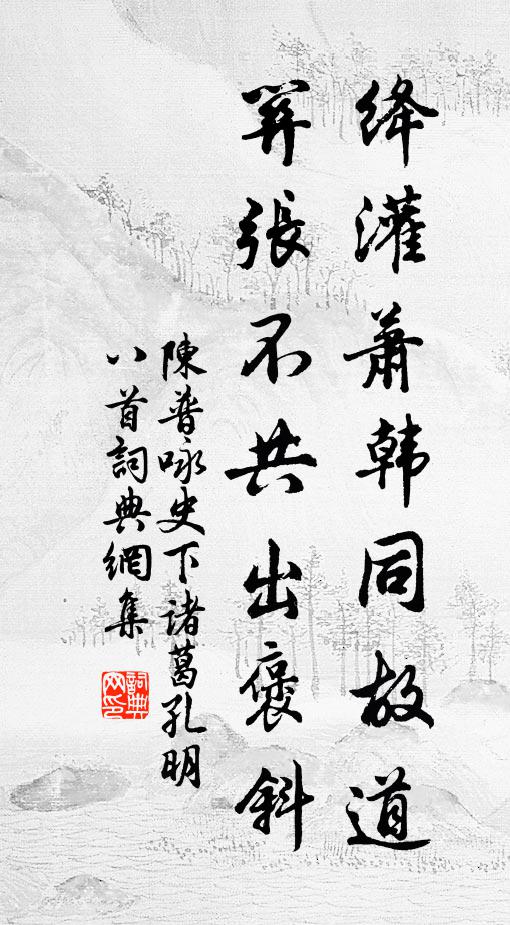 絳灌蕭韓同故道
關張不共出褒斜
陳普咏史下諸葛孔明
八首詞典網集
詞典
网印